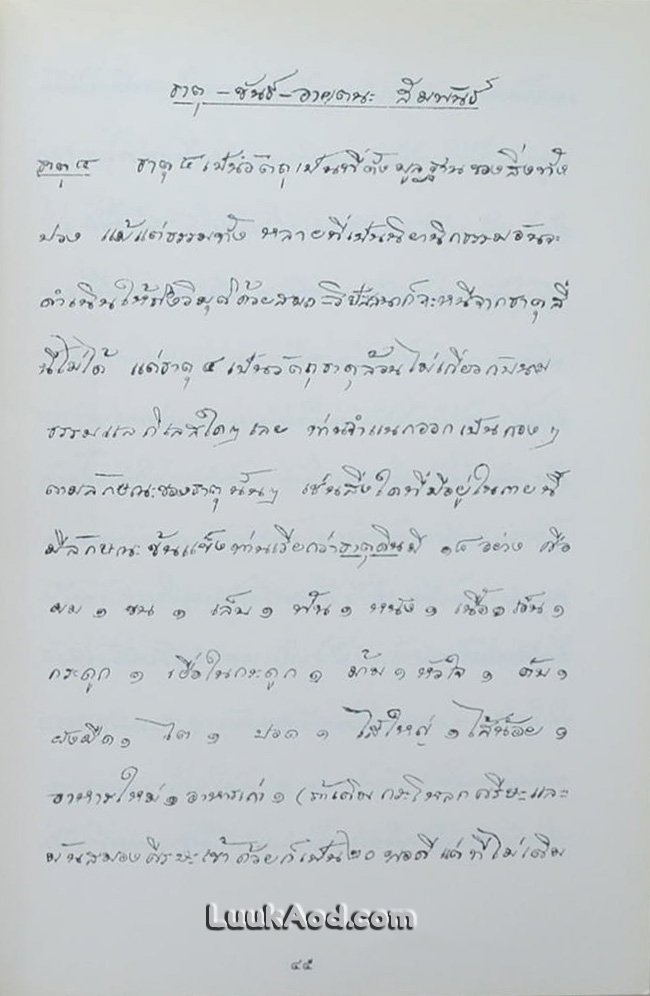 ธาตุ - ขันธ์ - อายตนะ สัมพันธ์
ธาตุ ๔ ธาตุ ๔ เป็นวัตถุเป็นที่ตั้งมูลฐานของสิ่งทั้ง
ปวง แม้แต่ธรรมทั้งหลายที่เป็นนิยานิกธรรมอันจะ
ดำเนินให้ถึงวิมุติด้วยสมถะวิปัสสนาก็จะหนีจากธาตุสี่
นี้ไม่ได้ แต่ธาตุ ๔ เป็นวัตถุธาตุล้วนไม่เกี่ยวกับนาม
ธรรมแลกิเลสใดๆ เลย ท่านจำแนกออกเป็นกองๆ
ตามลักษณะของธาตุนั้นๆ เช่นสิ่งใดที่มีอยู่ในกายนี้
มีลักษณะข้นแข็งท่านเรียกว่าธาตุดินมี ๑๘ อย่าง คือ
ผม ๑ ขน ๑ เล็บ ๑ ฟัน ๑ หนัง ๑ เนื้อ ๑ เอ็น ๑
กระดูก ๑ เยื่อในกระดูก ๑ ม้าม ๑ หัวใจ ๑ ตับ ๑
ผังผืด ๑ ไต ๑ ปอด ๑ ไส้ใหญ่ ๑ ไส้น้อย ๑
อาหารใหม่ ๑ อาหารเก่า ๑ (ถ้าเติมกะโหลกศรีษะและ
มันสมองศีรษะเข้าด้วยก็เป็น ๒๐ พอดี แต่ที่ไม่เติม
LuukAod.com
๔๕